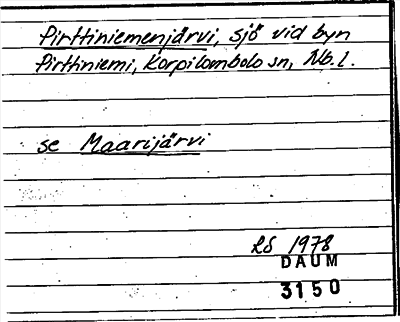 Pirttiniemenjärvi, sjö vid byn
Pirttiniemi, Korpilombolo sn, Nb. l.
se Maarijärvi
LS 1978
DAUM
3150